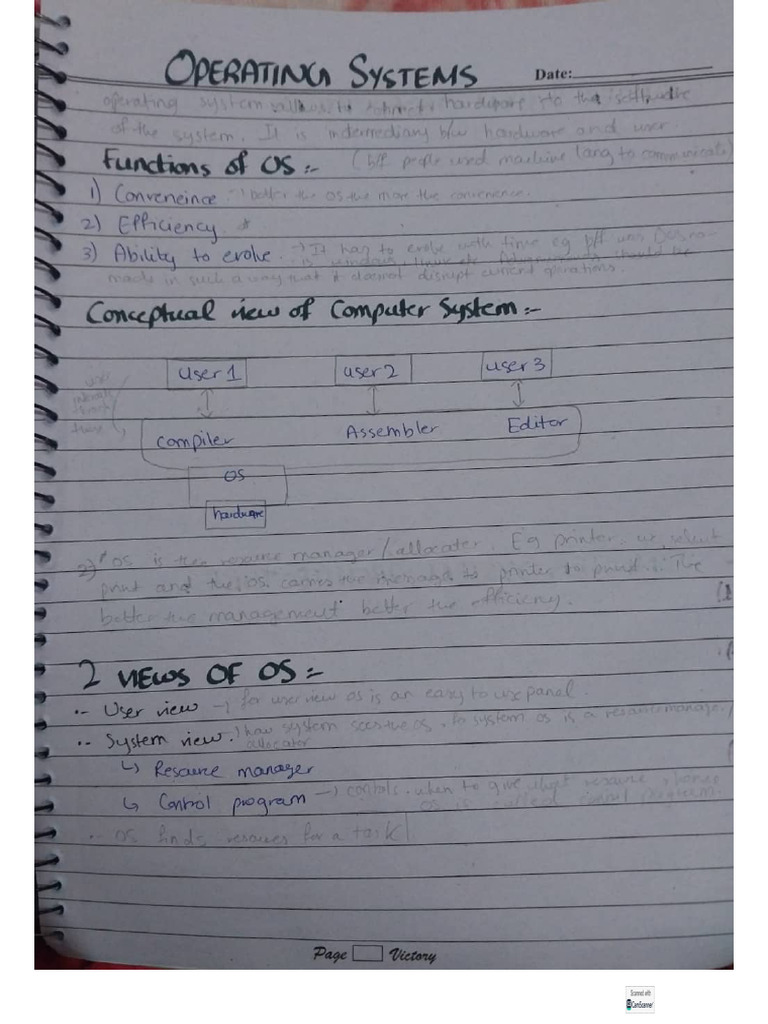 OPERATING SYSTEMS
Date:
operating system allows to hardware to the software
of the system. It is intermediary b/w hardware and user.
Functions of OS :-
(b/f people used machine lang to communicate)
1) Conveneince → better the OS the more the convenience.
2) Efficiency *
3) Ability to evolve → It has to evolve with time eg b/f was Dos now
is windows, linux etc Advancements should be
made in such a way that it doesnot disrupt current operations.
Conceptual view of Computer System :-
user 1 user 2 user 3
user
through
these
Compiler Assembler Editor
OS
hardware
2) * OS is the resource manager/allocater. Eg printer, we select
print and the OS carries the message to printer to print. The
better the management better the efficiency.
2 VIEWS OF OS :-
User view → for user view os is an easy to use panel.
System view. → how system sees the os. for system os is a resource manager/
allocator
↳ Resource manager
↳ Control program → controls when to give what resource, hence
OS is called control program.
OS finds resources for a task
Page Victory
Scanned with
CamScanner